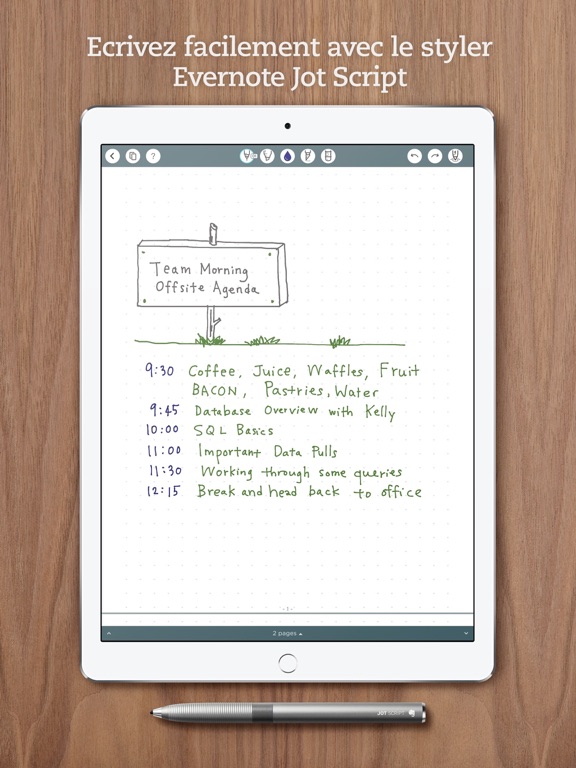 Ecrivez facilement avec le styler
Evernote Jot Script
?
Team Morning
Offsite Agenda
9:30 Coffee, Juice, Waffles, Fruit
BACON, Pastries, Water
9:45 Database Overview with Kelly
10:00 SQL Basics
11:00 Important Data Pulls
11:30 Working through some queries
12:15 Break and head back to office
- 1 -
2 pages
JOT SCRIPT